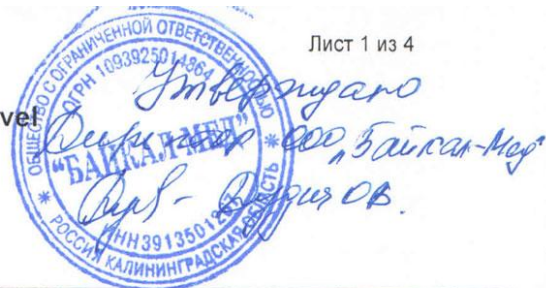 Лист 1 из 4
vel
Утверждаю
Директор ООО „Байкал-Мед"
ОБЩЕСТВО С ОГРАНИЧЕННОЙ ОТВЕТСТВЕННОСТЬЮ
ОГРН 1093925014864
"БАЙКАЛ-МЕД"
ИНН 3913501
РОССИЯ КАЛИНИНГРАДСКАЯ ОБЛАСТЬ